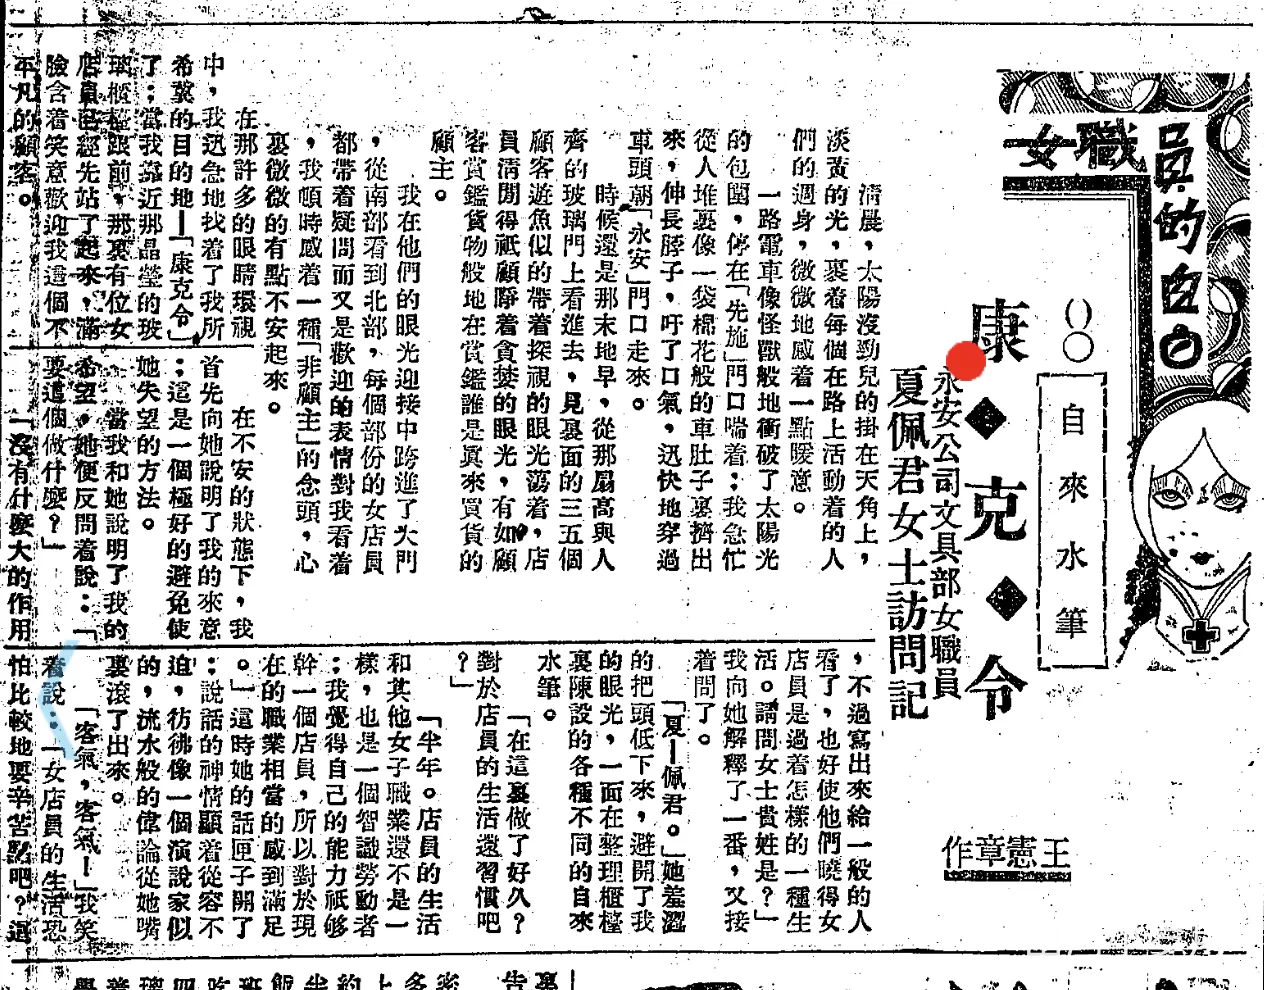 女職員的自白
自來水筆
康◆克◆令
永安公司文具部女職員
夏佩君女士訪問記
王憲章作
清晨，太陽沒勁兒的掛在天角上，
淡黃的光，裹着每個在路上活動着的人
們的週身，微微地感着一點暖意。
一路電車像怪獸般地衝破了太陽光
的包圍，停在「先施」門口喘着；我急忙
從人堆裏像一袋棉花般的車肚子裏擠出
來，伸長脖子，吁了口氣，迅快地穿過
車頭朝「永安」門口走來。
時候還是那末地早，從那扇高與人
齊的玻璃門上看進去，見裏面的三五個
顧客遊魚似的帶着探視的眼光蕩着，店
員清閒得祇顧睜着貪婪的眼光，有如顧
客賞鑑貨物般地在賞鑑誰是眞來買貨的
顧主。
我在他們的眼光迎接中跨進了大門
，從南部看到北部，每個部份的女店員
都帶着疑問而又是歡迎的表情對我看着
，我頓時感着一種「非顧主」的念頭，心
裏微微的有點不安起來。
在那許多的眼睛環視
中，我迅急地找着了我所
希冀的目的地—「康克令」
了；當我靠近那晶瑩的玻
璃櫃檯跟前，那裏有位女
店員已經先站了起來，滿
臉含着笑意歡迎我這個不
平凡的顧客。
在不安的狀態下，我
首先向她說明了我的來意
；這是一個極好的避免使
她失望的方法。
當我和她說明了我的
希望，她便反問着說：「
要這個做什麼？」
「沒有什麼大的作用
，不過寫出來給一般的人
看了，也好使他們曉得女
店員是過着怎樣的一種生
活。請問女士貴姓是？」
我向她解釋了一番，又接
着問了。
「夏—佩君。」她羞澀
的把頭低下來，避開了我
的眼光，一面在整理櫃檯
裏陳設的各種不同的自來
水筆。
「在這裏做了好久？
對於店員的生活還習慣吧
？」
「半年。店員的生活
和其他女子職業還不是一
樣，也是一個智識勞動者
；我覺得自己的能力祇够
幹一個店員，所以對於現
在的職業相當的感到滿足
。」這時她的話匣子開了
；說話的神情顯着從容不
迫，彷彿像一個演說家似
的，流水般的偉論從她嘴
裏滾了出來。
「客氣，客氣—」我笑
着說：「女店員的生活恐
怕比較地要辛苦點吧？這